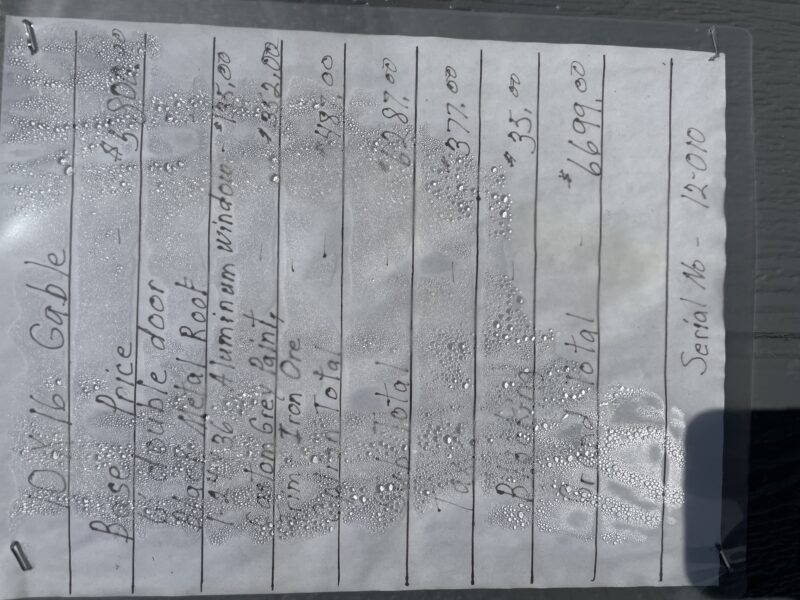 10 X 16 Gable
Base Price - $5,800.00
double door
Black Metal Roof
1- 24X36 Aluminum window - $135.00
Custom Grey Paint, $352.00
Trim Iron Ore
Option Total - $487.00
Sub Total - $6287.00
Tax - $377.00
Blocking - $35.00
Grand Total - $6699.00
Serial No - 12-010